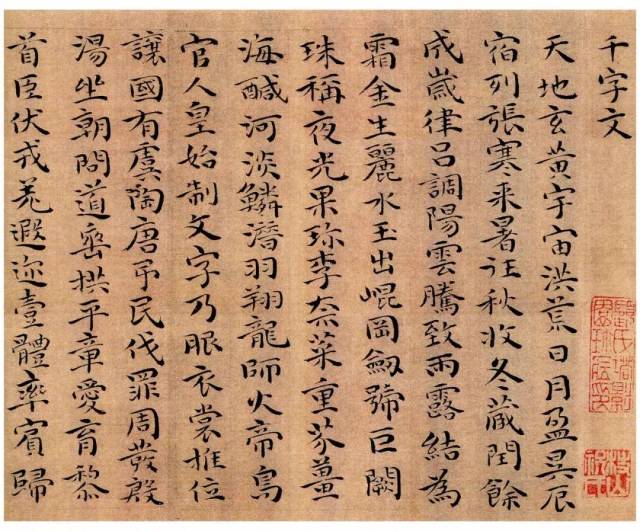 千字文
天地玄黃宇宙洪荒日月盈昃辰
宿列張寒来暑往秋收冬藏閏餘
成歲律吕調陽雲騰致雨露結為
霜金生麗水玉出崐岡劔號巨闕
珠稱夜光果珍李柰菜重芥薑
海醎河淡鱗潛羽翔龍師火帝鳥
官人皇始制文字乃服衣裳推位
讓國有虞陶唐弔民伐罪周發殷
湯坐朝問道垂拱平章愛育黎
首臣伏戎羌遐迩壹體率賓歸